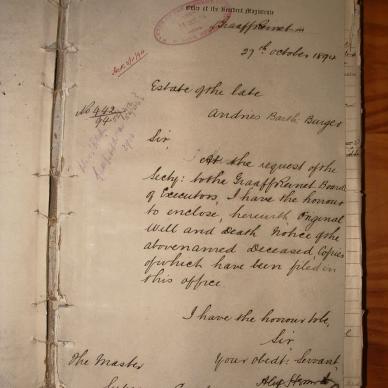 Office of the Resident Magistrate
Graaff Reinet
27th October 1894
Estate of the late
Andries Barth. Burger
No 942
94
Sir,
At the request of the
Secty: to the Graaff Reinet Board
of Executors, I have the honour
to enclose, herewith Original
Will and Death Notice of the
abovenamed Deceased, Copies
of which have been filed in
this office.
I have the honour to be,
Sir,
The Master
Your obedt: Servant,